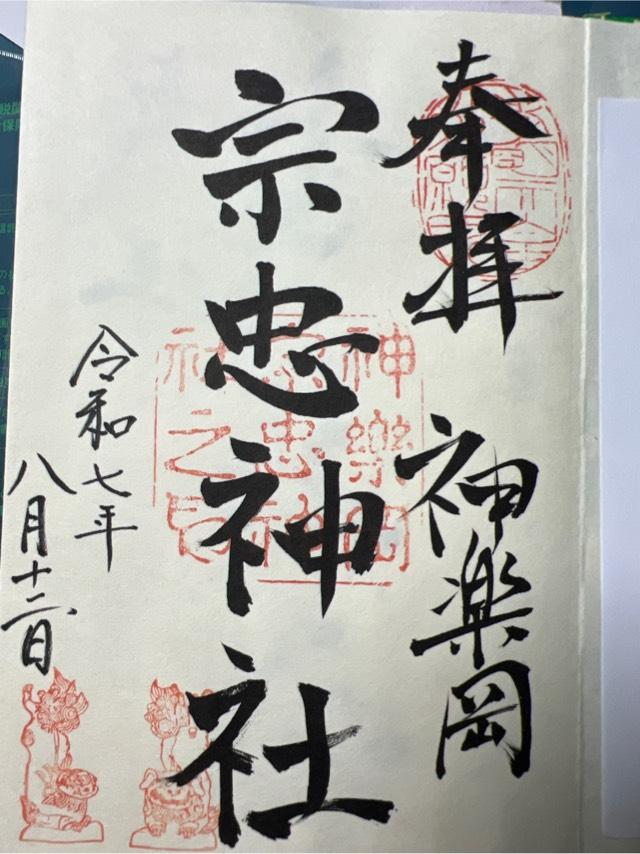 奉拝
神楽岡
宗忠神社
令和七年
八月十二日
神樂岡
宗忠神
社之印